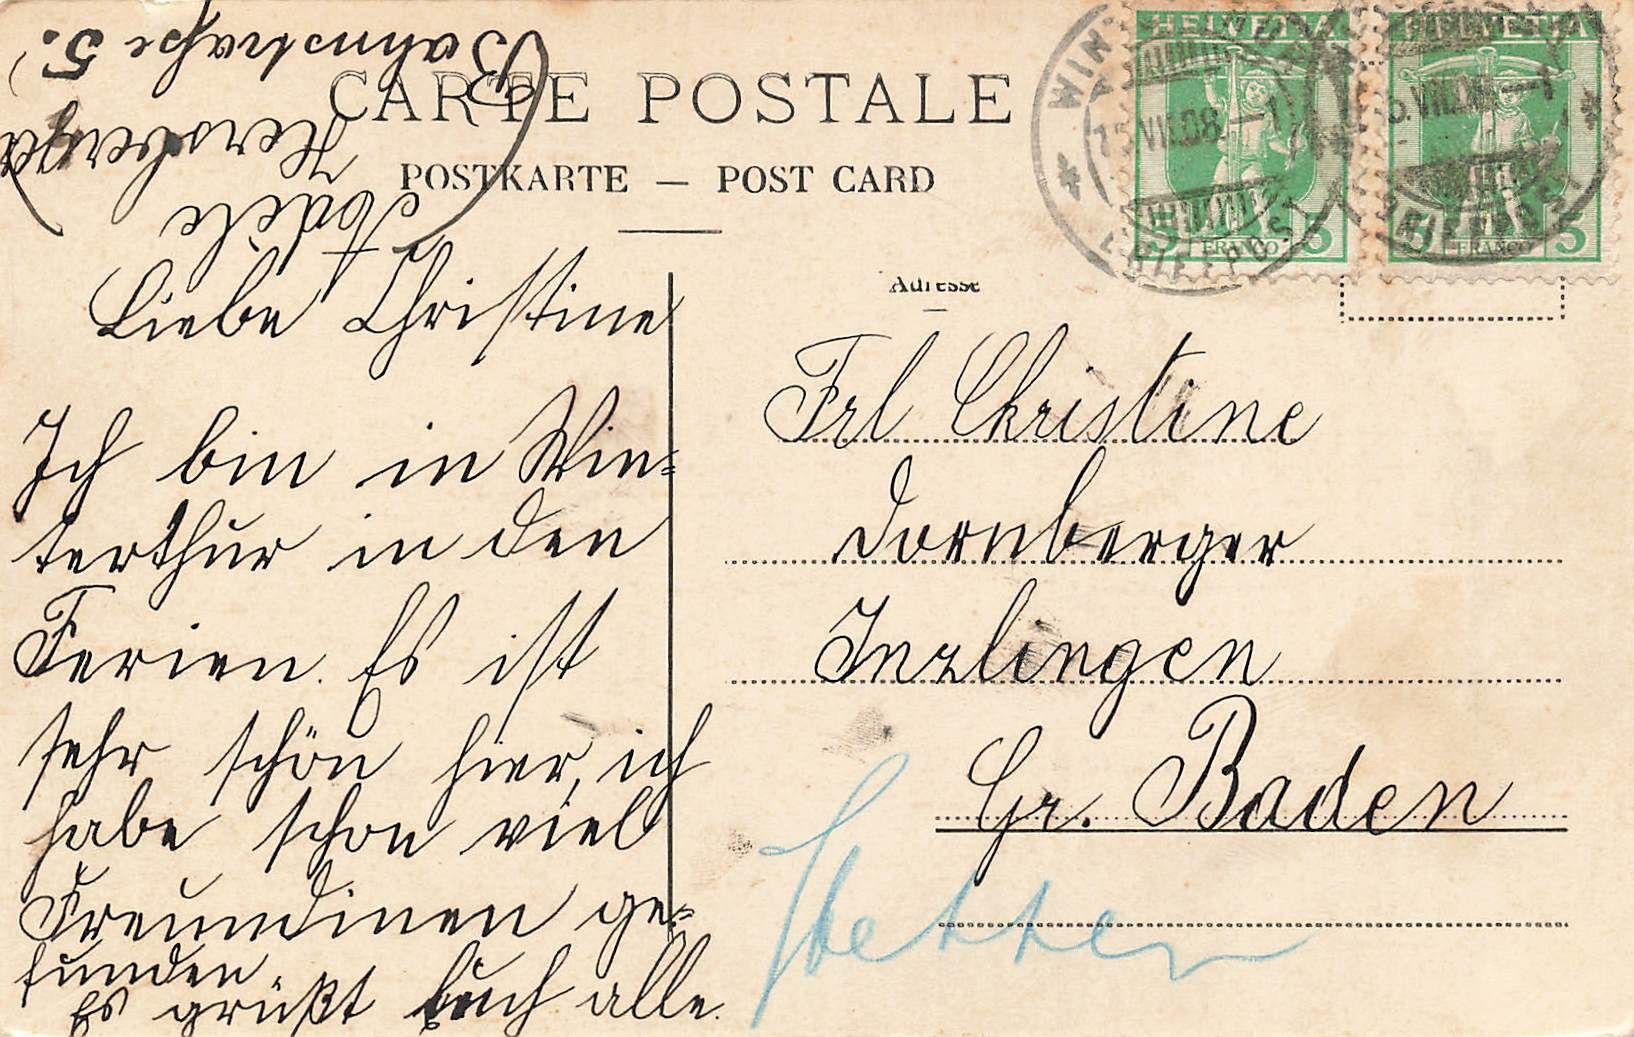 CARTE POSTALE
POSTKARTE — POST CARD
HELVETIA
HELVETIA
5 FRANCO 5
5 FRANCO 5
WIN
VII.08.—1
BRIEFPOST
Adresse
Liebe Christine
Ich bin in Win=
terthur in den
Ferien. Es ist
sehr schön hier, ich
habe schon viel
Freundinen ge=
funden
Es grüßt Euch alle
Adele
Hersberger
(Bahnstraße 5.)
Frl Christine
Dornberger
Inzlingen
Gr. Baden
Stetten